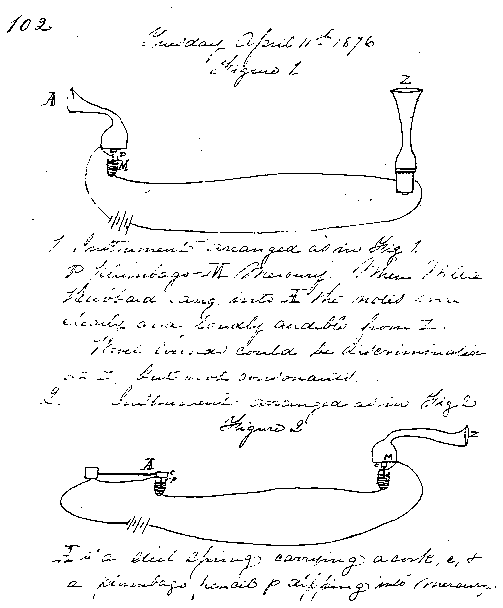 102
Tuesday April 11th 1876
Figure 1
A
Z
P
M
1 Instrument arranged as in Fig 1.
P plumbago - M Mercury. When Willie
Hubbard sang into A the notes were
clearly and loudly audible from Z.
Vowel sounds could be discriminated
at Z but not consonants.
2. Instrument arranged as in Fig 2
Figure 2
A
c
P
M
Z
A is a steel spring carrying a cork, c, &
a plumbago pencil p dipping into Mercury